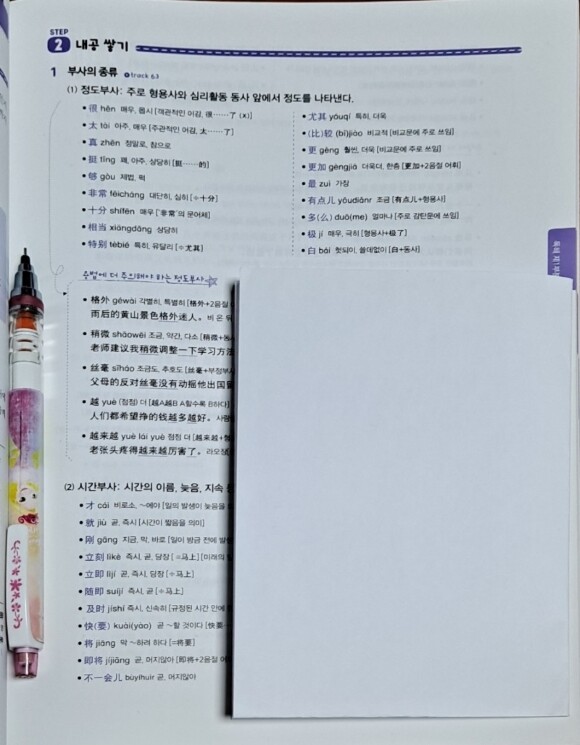 STEP
2 내공 쌓기
1 부사의 종류 track 63
(1) 정도부사: 주로 형용사와 심리활동 동사 앞에서 정도를 나타낸다.
• 很 hěn 매우, 몹시 [객관적인 어감, 很……了 (X)]
• 太 tài 아주, 매우 [주관적인 어감, 太……了]
• 真 zhēn 정말로, 참으로
• 挺 tǐng 꽤, 아주, 상당히 [挺……的]
• 够 gòu 제법, 퍽
• 非常 fēicháng 대단히, 심히 [≒十分]
• 十分 shífēn 매우 ['非常'의 문어체]
• 相当 xiāngdāng 상당히
• 特别 tèbié 특히, 유달리 [≒尤其]
• 尤其 yóuqí 특히, 더욱
• (比)较 (bǐ)jiào 비교적 [비교문에 주로 쓰임]
• 更 gèng 훨씬, 더욱 [비교문에 주로 쓰임]
• 更加 gèngjiā 더욱더, 한층 [更加+2음절 어휘]
• 最 zuì 가장
• 有点儿 yǒudiǎnr 조금 [有点儿+형용사]
• 多(么) duō(me) 얼마나 [주로 감탄문에 쓰임]
• 极 jí 매우, 극히 [형용사+极了]
• 白 bái 헛되이, 쓸데없이 [白+동사]
수법에 더 주의해야 하는 정도부사
• 格外 géwài 각별히, 특별히 [格外+2음절
雨后的黄山景色格外迷人。비 온 뒤
• 稍微 shāowēi 조금, 약간, 다소 [稍微+동사
老师建议我稍微调整一下学习方法
• 丝毫 sīháo 조금도, 추호도 [丝毫+부정부
父母的反对丝毫没有动摇他出国留
• 越 yuè (점점) 더 [越A越B A할수록 B하다]
人们都希望挣的钱越多越好。사람
• 越来越 yuè lái yuè 점점 더 [越来越+형
老张头疼得越来越厉害了。라오장
(2) 시간부사: 시간의 이름, 늦음, 지속 등
• 才 cái 비로소, ~에야 [일의 발생이 늦음을
• 就 jiù 곧, 즉시 [시간이 빨음을 의미]
• 刚 gāng 지금, 막, 바로 [일이 방금 전에 발생
• 立刻 lìkè 즉시, 곧, 당장 [=马上] [미래의
• 立即 lìjí 곧, 즉시, 당장 [≒马上]
• 随即 suíjí 즉시, 곧 [≒马上]
• 及时 jíshí 즉시, 신속히 [규정된 시간 안에
• 快(要) kuài(yào) 곧 ~할 것이다 [快要…
• 将 jiāng 막 ~하려 하다 [=将要]
• 即将 jíjiāng 곧, 머지않아 [即将+2음절
• 不一会儿 bùyíhuìr 곧, 머지않아
독해 제1부분